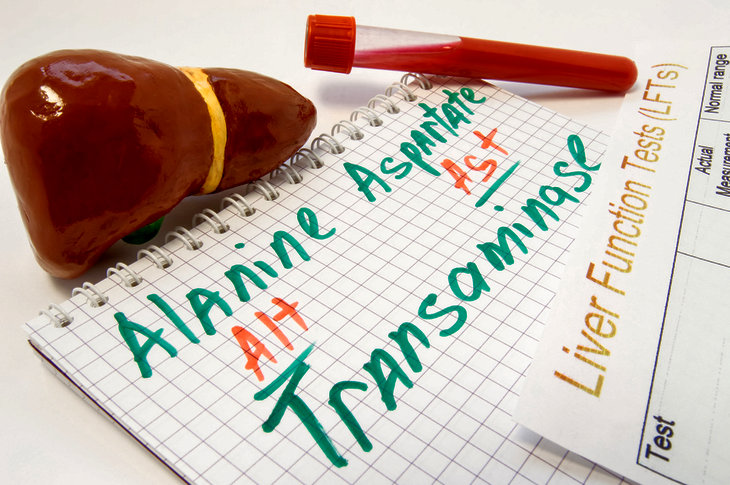 Alanine Aspartate
Alt Ast
Transaminase
Liver Function Tests (LFTs)
Test
Actual
Measurement
Normal range